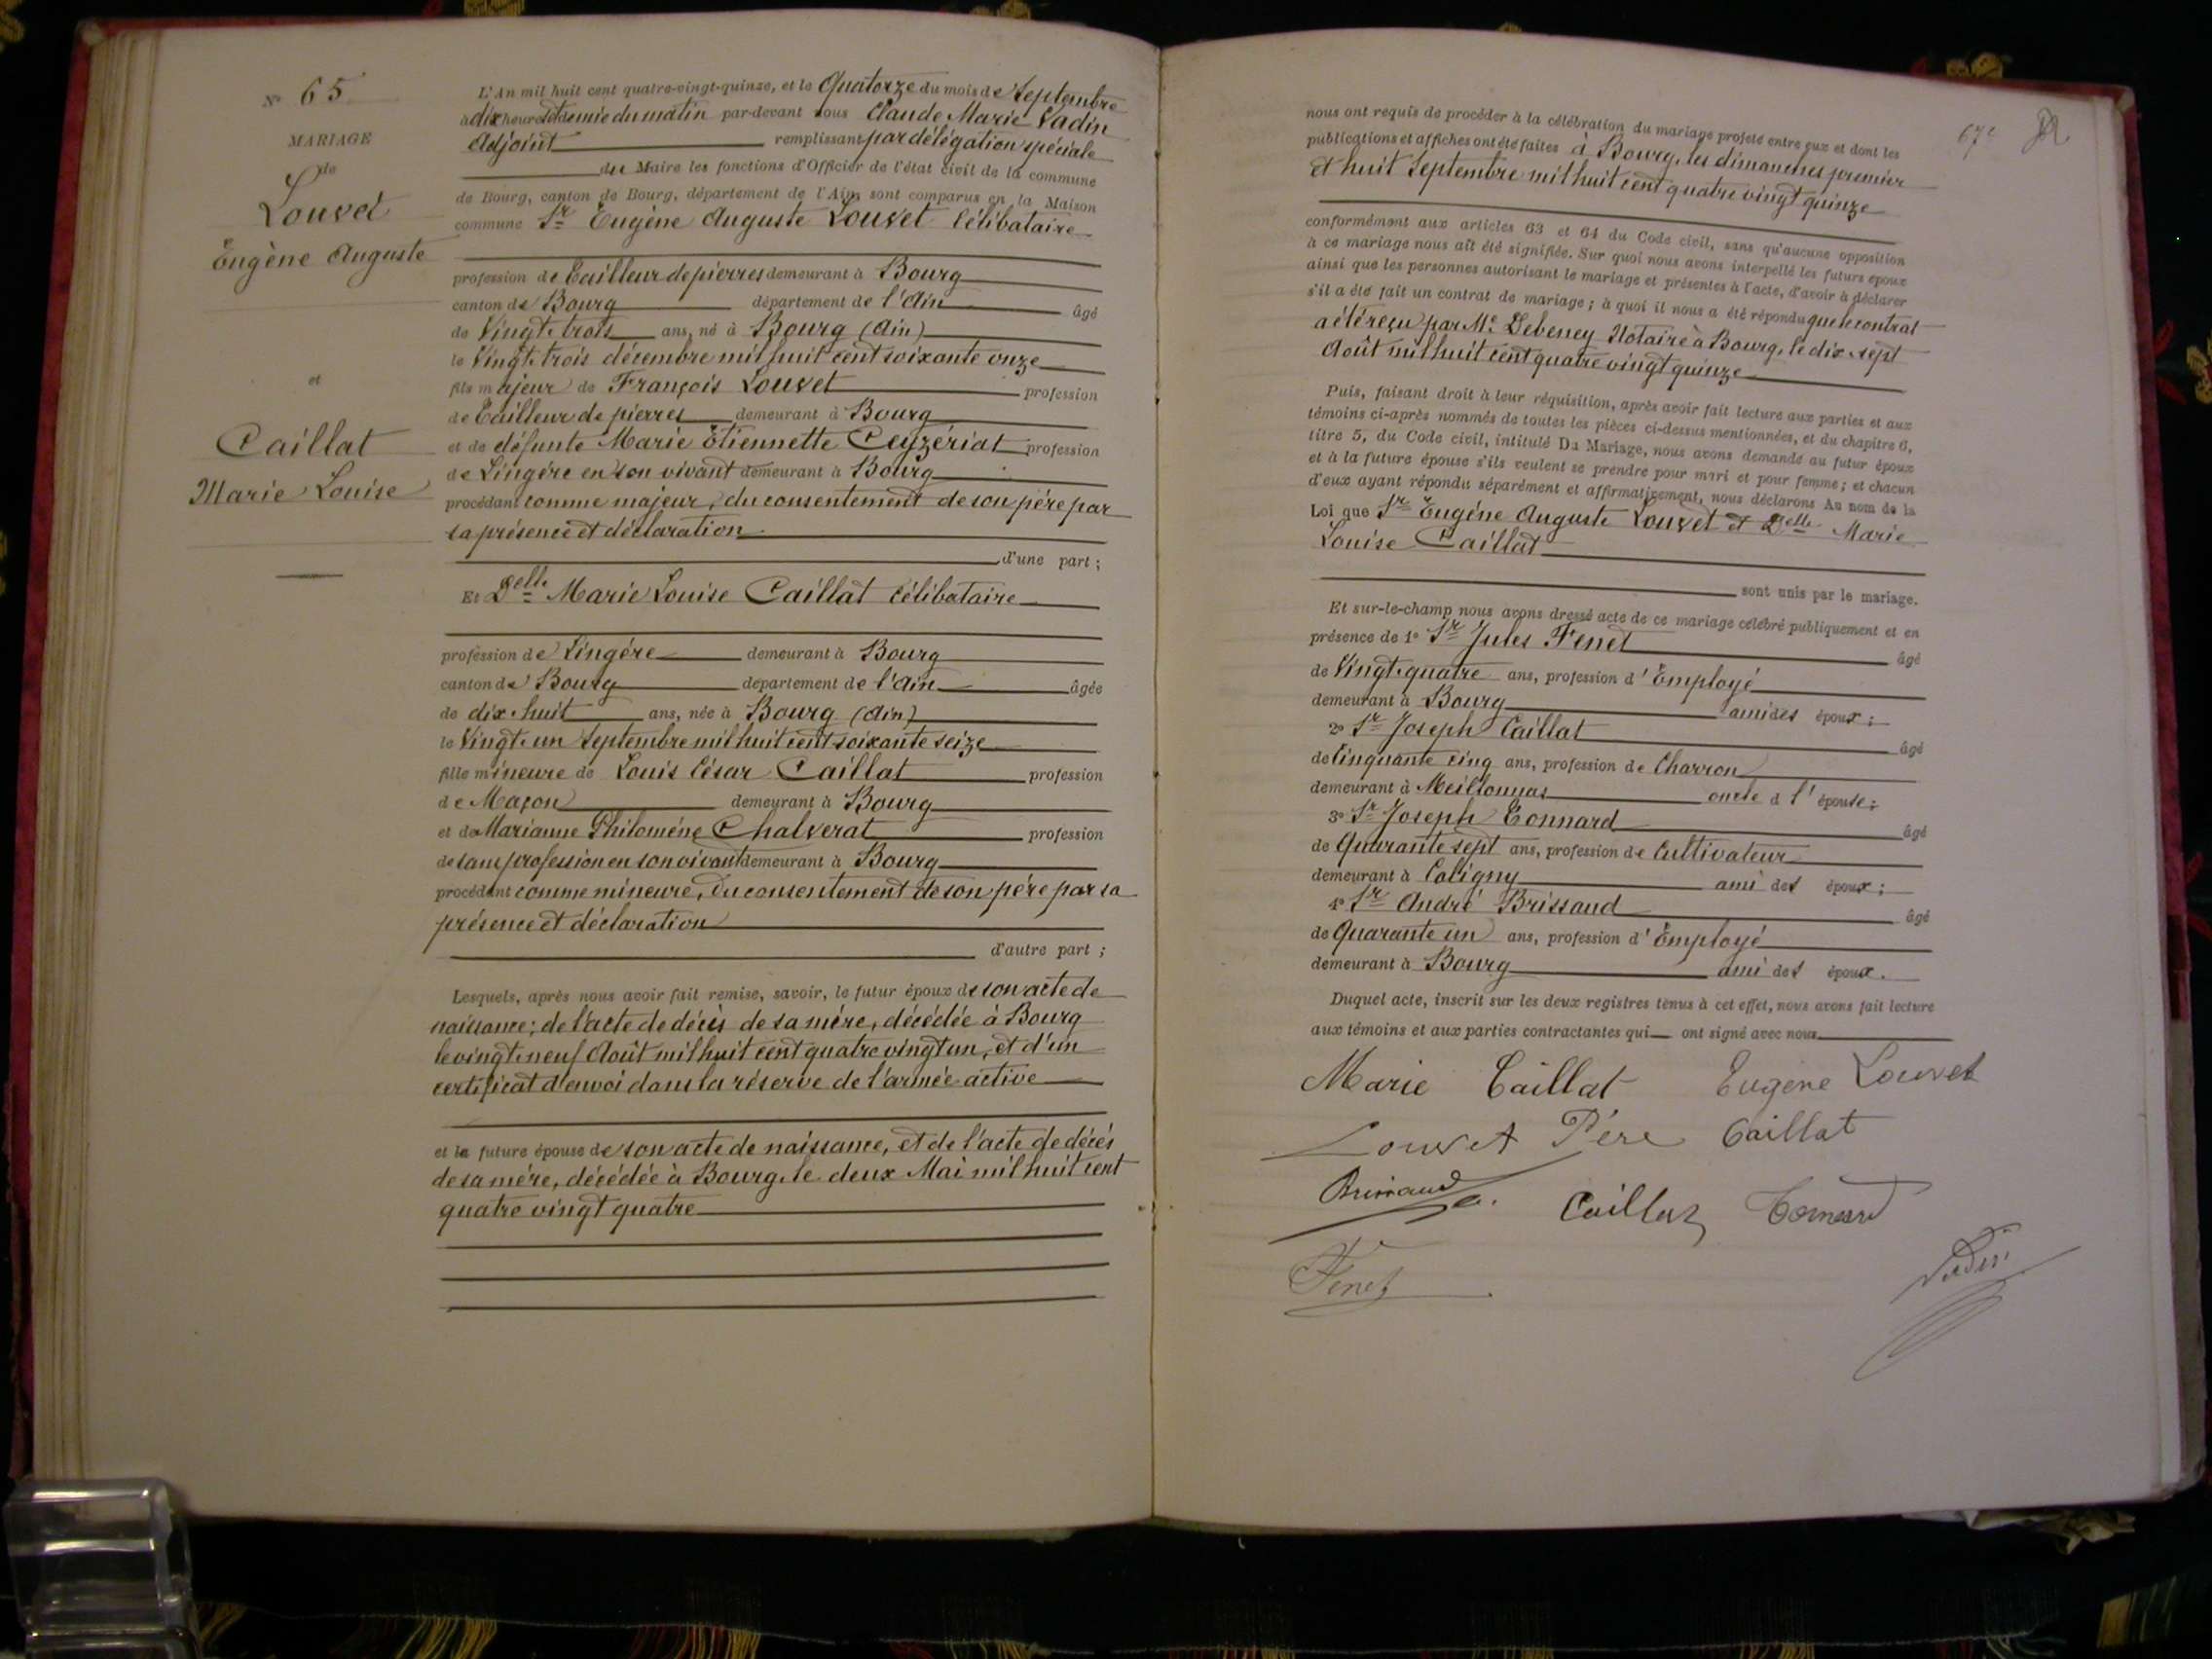 N° 65
MARIAGE
de
Louvet
Eugène Auguste
et
Caillat
Marie Louise
L'An mil huit cent quatre-vingt-quinze, et le Quatorze du mois de Septembre
à dix heures et demie du matin par-devant nous Claude Marie Vadin
Adjoint remplissant par délégation spéciale
du Maire les fonctions d'Officier de l'état civil de la commune
de Bourg, canton de Bourg, département de l'Ain, sont comparus en la Maison
commune Sr Eugène Auguste Louvet Célibataire
profession de Tailleur de pierres demeurant à Bourg
canton de Bourg département de l'Ain âgé
de Vingt-trois ans, né à Bourg (Ain)
le Vingt-trois décembre mil huit cent soixante onze
fils majeur de François Louvet profession
de Tailleur de pierres demeurant à Bourg
et de défunte Marie Etiennette Ceyzériat profession
de Lingère en son vivant demeurant à Bourg
procédant comme majeur, du consentement de son père par
sa présence et déclaration
d'une part ;
Et Delle Marie Louise Caillat Célibataire
profession de Lingère demeurant à Bourg
canton de Bourg département de l'Ain âgée
de dix-huit ans, née à Bourg (Ain)
le Vingt-un Septembre mil huit cent soixante seize
fille mineure de Louis César Caillat profession
de Maçon demeurant à Bourg
et de Marianne Philomène Chalverat profession
de sans profession en son vivant demeurant à Bourg
procédant comme mineure, du consentement de son père par sa
présence et déclaration
d'autre part ;
Lesquels, après nous avoir fait remise, savoir, le futur époux de son acte de
naissance ; de l'acte de décès de sa mère, décédée à Bourg
le vingt-neuf Août mil huit cent quatre vingt un, et d'un
certificat d'envoi dans la réserve de l'armée active
et la future épouse de son acte de naissance, et de l'acte de décès
de sa mère, décédée à Bourg, le deux Mai mil huit cent
quatre vingt quatre
67e
nous ont requis de procéder à la célébration du mariage projeté entre eux et dont les
publications et affiches ont été faites à Bourg, les dimanches premier
et huit Septembre mil huit cent quatre vingt quinze
conformément aux articles 63 et 64 du Code civil, sans qu'aucune opposition
à ce mariage nous ait été signifiée. Sur quoi nous avons interpellé les futurs époux
ainsi que les personnes autorisant le mariage et présentes à l'acte, d'avoir à déclarer
s'il a été fait un contrat de mariage ; à quoi il nous a été répondu que le contrat
a été reçu par Me Debeney Notaire à Bourg, le dix-sept
Août mil huit cent quatre vingt quinze
Puis, faisant droit à leur réquisition, après avoir fait lecture aux parties et aux
témoins ci-après nommés de toutes les pièces ci-dessus mentionnées, et du chapitre 6,
titre 5, du Code civil, intitulé Du Mariage, nous avons demandé au futur époux
et à la future épouse s'ils veulent se prendre pour mari et pour femme ; et chacun
d'eux ayant répondu séparément et affirmativement, nous déclarons Au nom de la
Loi que Sr Eugène Auguste Louvet et Delle Marie
Louise Caillat
sont unis par le mariage.
Et sur-le-champ nous avons dressé acte de ce mariage célébré publiquement et en
présence de 1° Sr Jules Fenet âgé
de Vingt-quatre ans, profession d'Employé
demeurant à Bourg ami des époux ;
2° Sr Joseph Caillat âgé
de Cinquante cinq ans, profession de Charron
demeurant à Meillonnas oncle d l'épouse ;
3° Sr Joseph Tonnard âgé
de Quarante sept ans, profession de Cultivateur
demeurant à Coligny ami des époux ;
4° Sr André Brissaud âgé
de Quarante un ans, profession d'Employé
demeurant à Bourg ami des époux.
Duquel acte, inscrit sur les deux registres tenus à cet effet, nous avons fait lecture
aux témoins et aux parties contractantes qui ont signé avec nous
Marie Caillat Eugène Louvet
Louvet Père Caillat
Brissaud Caillat Tonnard
Fenet Vadin